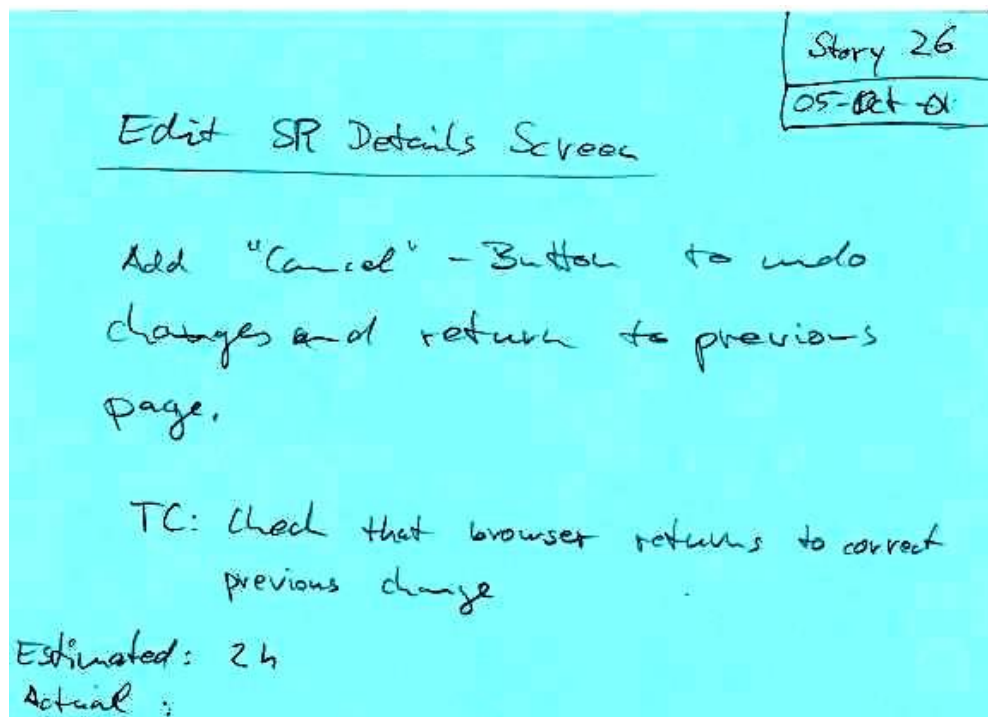 Story 26
05-Oct-01
Edit SR Details Screen
Add "Cancel"-Button to undo
changes and return to previous
page.
TC: Check that browser returns to correct
previous change
Estimated: 2h
Actual :